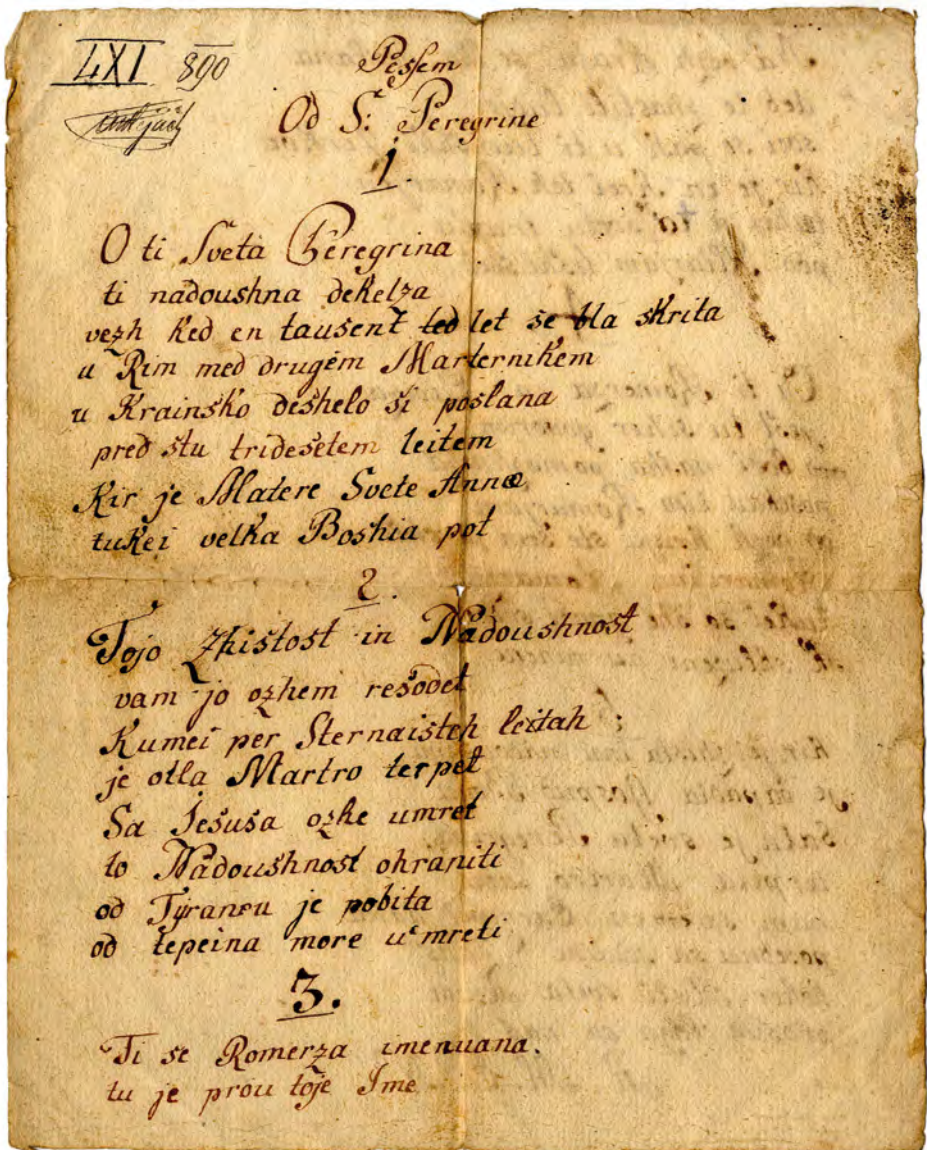 LXI 890
Pessem
Od S: Peregrine
1.
O ti Sveta Peregrina
ti nadoushna dekelza
vezh ked en tausent let se bla skrita
u Rim med drugem Marternikem
u Krainsko deshelo si poslana
pred stu tridesetem leitem
Kir je Matere Svete Annæ
tukei velka Boshia pot
2.
Tojo Zhistost in Nadoushnost
vam jo ozhem resodet
Kumei per Sternaisteh leitah ;
je otla Martro terpet
Sa Jesusa ozhe umret
to Nadoushnost ohraniti
od Tyranou je pobita
od tepeina more umreti
3.
Ti se Romerza imenuana.
tu je prou toje Ime